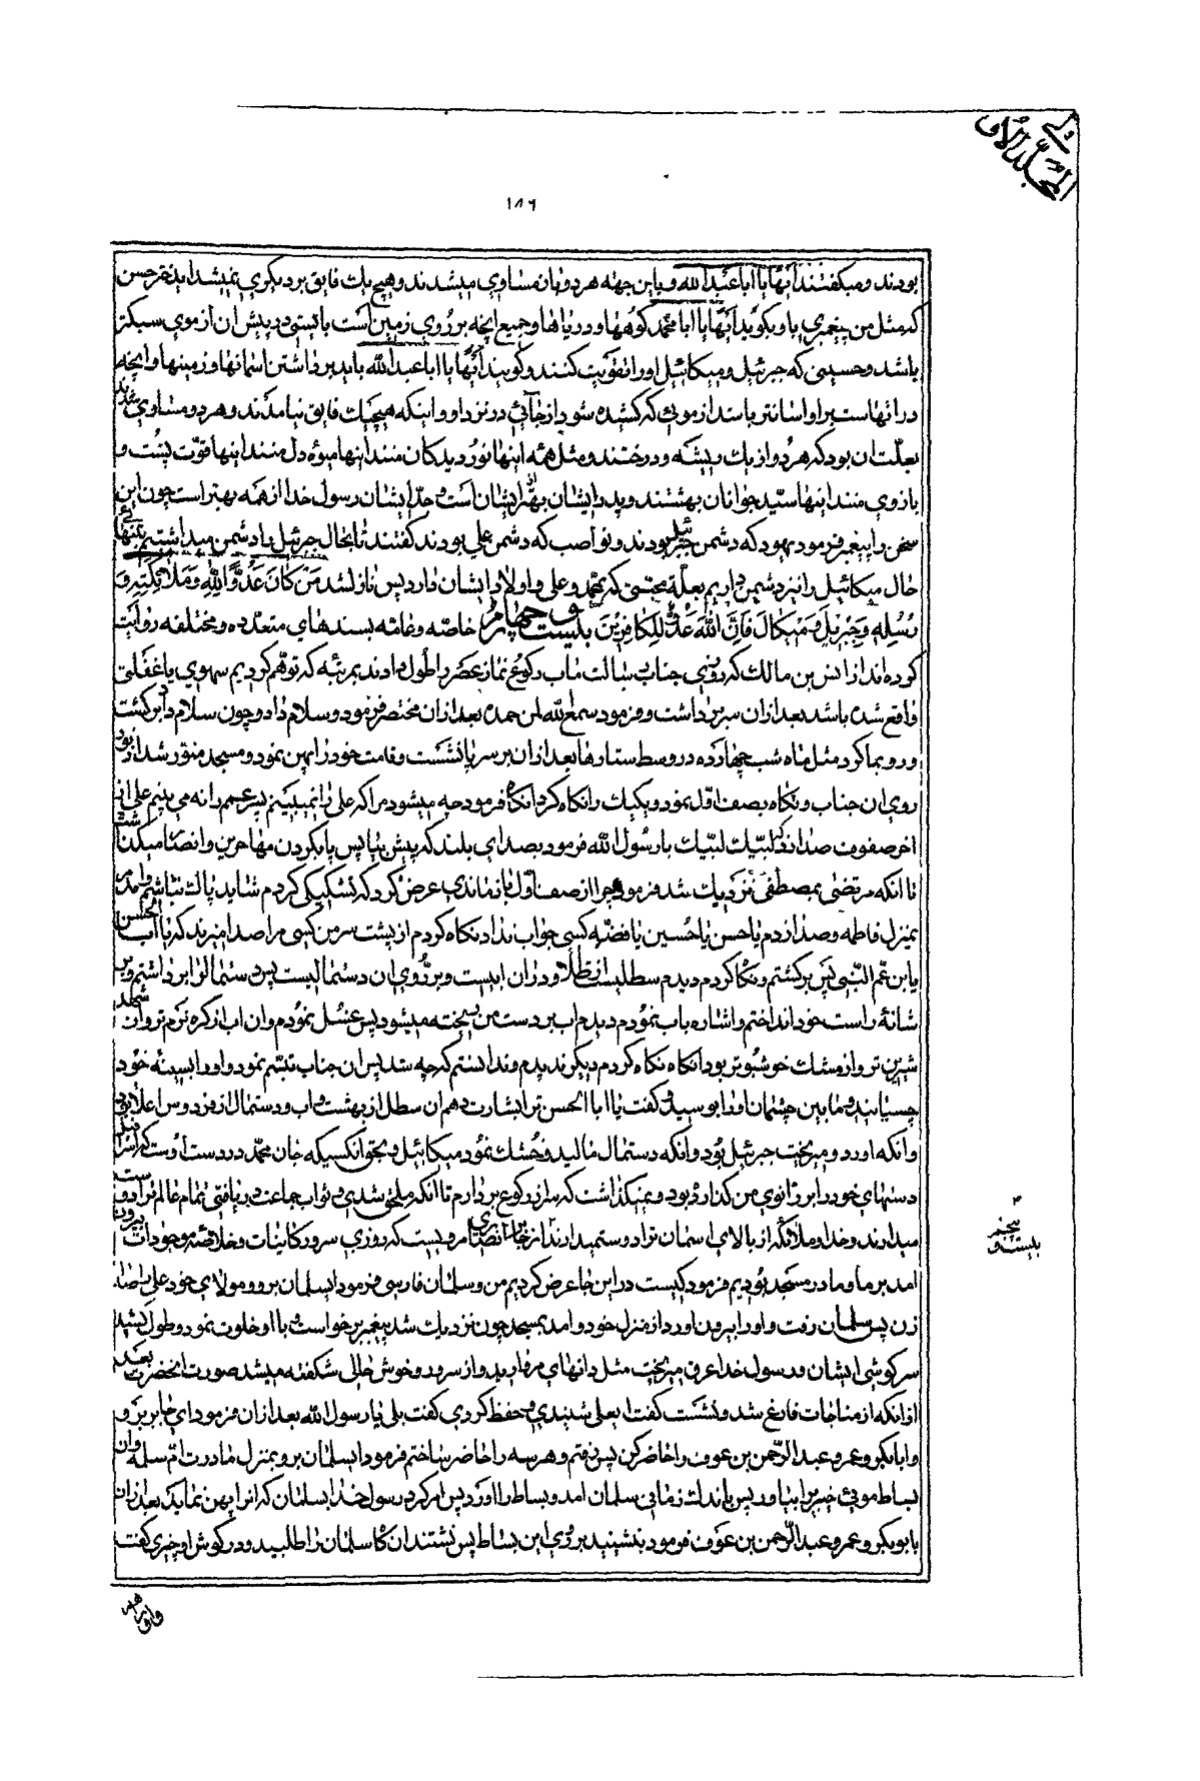 المجلد الاول
١٥٦
بودند و میکفتند ایها یا ابا عبد الله و باین جهه هر دو با ن مساوی میشدند و هیچ یك فایق بر دیکری نمیشد اینقدر حسن
که مثل من پیغمبری باو بکوید ایها یا ابا محمد کوهها و دریاها و جمیع انچه بر روی زمین است بایستی در پیش ان از موی سبکتر
باشد و حسینی که جبرئیل و میکائیل او را تقویت کنند و کویند ایها یا ابا عبد الله باید برداشتن اسمانها و زمینها و انچه
در انهاست بر او اسانتر باشد از موئی که کشیده شود از جائی در نزد او و اینکه هیچیك فایق نیامدند و هر دو مساوی شدند
بعلت ان بود که هر دو از یك ریشه و درختند و مثل همه اینها نور دیدکان منند اینها میوه دل منند اینها قوت پشت و
بازوی منند اینها سید جوانان بهشتند و پدر ایشان بهتر از ایشان است و جد ایشان رسول خدا از همه بهتر است چون این
سخن را پیغمبر فرمود یهود که دشمن جبرئیل بودند و نواصب که دشمن علی بودند کفتند تا بحال جبرئیل را دشمن میداشتیم بتنهائی
حال میکائیل را نیز دشمن داریم بعلة محبتی که بمحمد و علی و اولاد ایشان دارد پس نازل شد من کان عدوا لله و ملائکته و
رسله و جبریل و میکال فان الله عدو للکافرین بیست و چهارم خاصه و عامه بسندهای متعدده و مختلفه روایت
کرده اند از انس بن مالك که روزی جناب رسالت ماب رکوع نماز عصر را طول دادند بمرتبه که توهم کردیم سهوی یا غفلتی
واقع شده باشد بعد از ان سر برداشت و فرمود سمع الله لمن حمده بعد از ان مختصر فرمود و سلام داد و چون سلام داد برکشت
و رو بما کرد مثل ماه شب چهارده در وسط ستارها بعد از ان بر سر پا نشست و قامت خود را پهن نمود و مسجد منور شد از نور
روی ان جناب و نکاه بصف اول نمود و یکیك را نکاه کرد انکاه فرمود چه میشود مرا که علی را نمیبینم پسر عمم را نه می بینم علی از
اخر صفوف صدا زد که لبیك لبیك یا رسول الله فرمود بصدای بلند که پیش بیا پس پا بکردن مهاجرین و انصار میکذاشت
تا انکه مرتضی بمصطفی نزدیك شد فرمود چرا از صف اول باز ماندی عرض کرد که تشکیکی کردم شاید پاك نباشم و امدم
بمنزل فاطمه و صدا زدم یا حسن یا حسین یا فضه کسی جواب نداد نکاه کردم از پشت سر من کسی مرا صدا میزند که یا ابا الحسن
یا بن عم النبی پس برکشتم و نکاه کردم دیدم سطلیست از طلا و در ان ابیست و بر روی ان دستمالیست پس دستمال را برداشتم و بر
شانهٔ راست خود انداختم و اشاره باب نمودم دیدم اب بر دست من ریخته میشود پس غسل نمودم و ان اب از کره نرم تر و از شهد
شیرین تر و از مشك خوشبوتر بود انکاه نکاه کردم دیکر ندیدم و ندانستم که چه شد پس ان جناب تبسم نمود و او را بسینه خود
چسبانید و ما بین چشمان او را بوسید و کفت یا ابا الحسن ترا بشارت دهم ان سطل از بهشت و اب و دستمال از فردوس اعلا بود
و انکه اورد و میریخت جبرئیل بود و انکه دستمال مالید و خشك نمود میکائیل و بحق انکسیکه جان محمد در دست اوست که اسرافیل
دستهای خود را بر زانوی من کذارده بود و نمیکذاشت که سر از رکوع بردارم تا انکه ملحق شدی و ثواب جماعت دریافتی تمام عالم ترا دوست
میدارند و خدا و ملائکه از بالای اسمان ترا دوست میدارند از جابر انصاری مرویست که روزی سرور کاینات و خلاصه موجودات بیرون
امد بر ما و ما در مسجد بودیم فرمود کیست در این جا عرض کردیم من و سلمان فارسی فرمود ایسلمان برو و مولای خود علی را صدا
زن پس سلمان رفت و او را بیرون اورد از منزل خود و امد بمسجد چون نزدیك شد پیغمبر برخواست و با او خلوت نمود و طول کشید
سرکوشی ایشان و رسول خدا عرق میریخت مثل دانهای مروارید و از سرور و خوش حالی شکفته میشد صورت انحضرت بعد
از انکه از مناجات فارغ شد و نشست کفت ایعلی شنیدی و حفظ کردی کفت بلی یا رسول الله بعد از ان فرمود ای جابر برو
و ابا بکر و عمر و عبد الرحمن بن عوف را حاضر کن پس رفتم و هر سه را حاضر ساختم فرمود ایسلمان برو بمنزل مادرت ام سلمه و ان
بساط موئی خیبر را بیاور پس باندك زمانی سلمان امد و بساط را اورد پس امر کرد رسول خدا ایسلمان که انرا پهن نماید بعد از ان
بابوبکر و عمر و عبد الرحمن بن عوف فرمود بنشینید بر روی این بساط پس نشستند ان کاه سلمان را طلبید و در کوش او چیزی کفت
بیست و پنجم